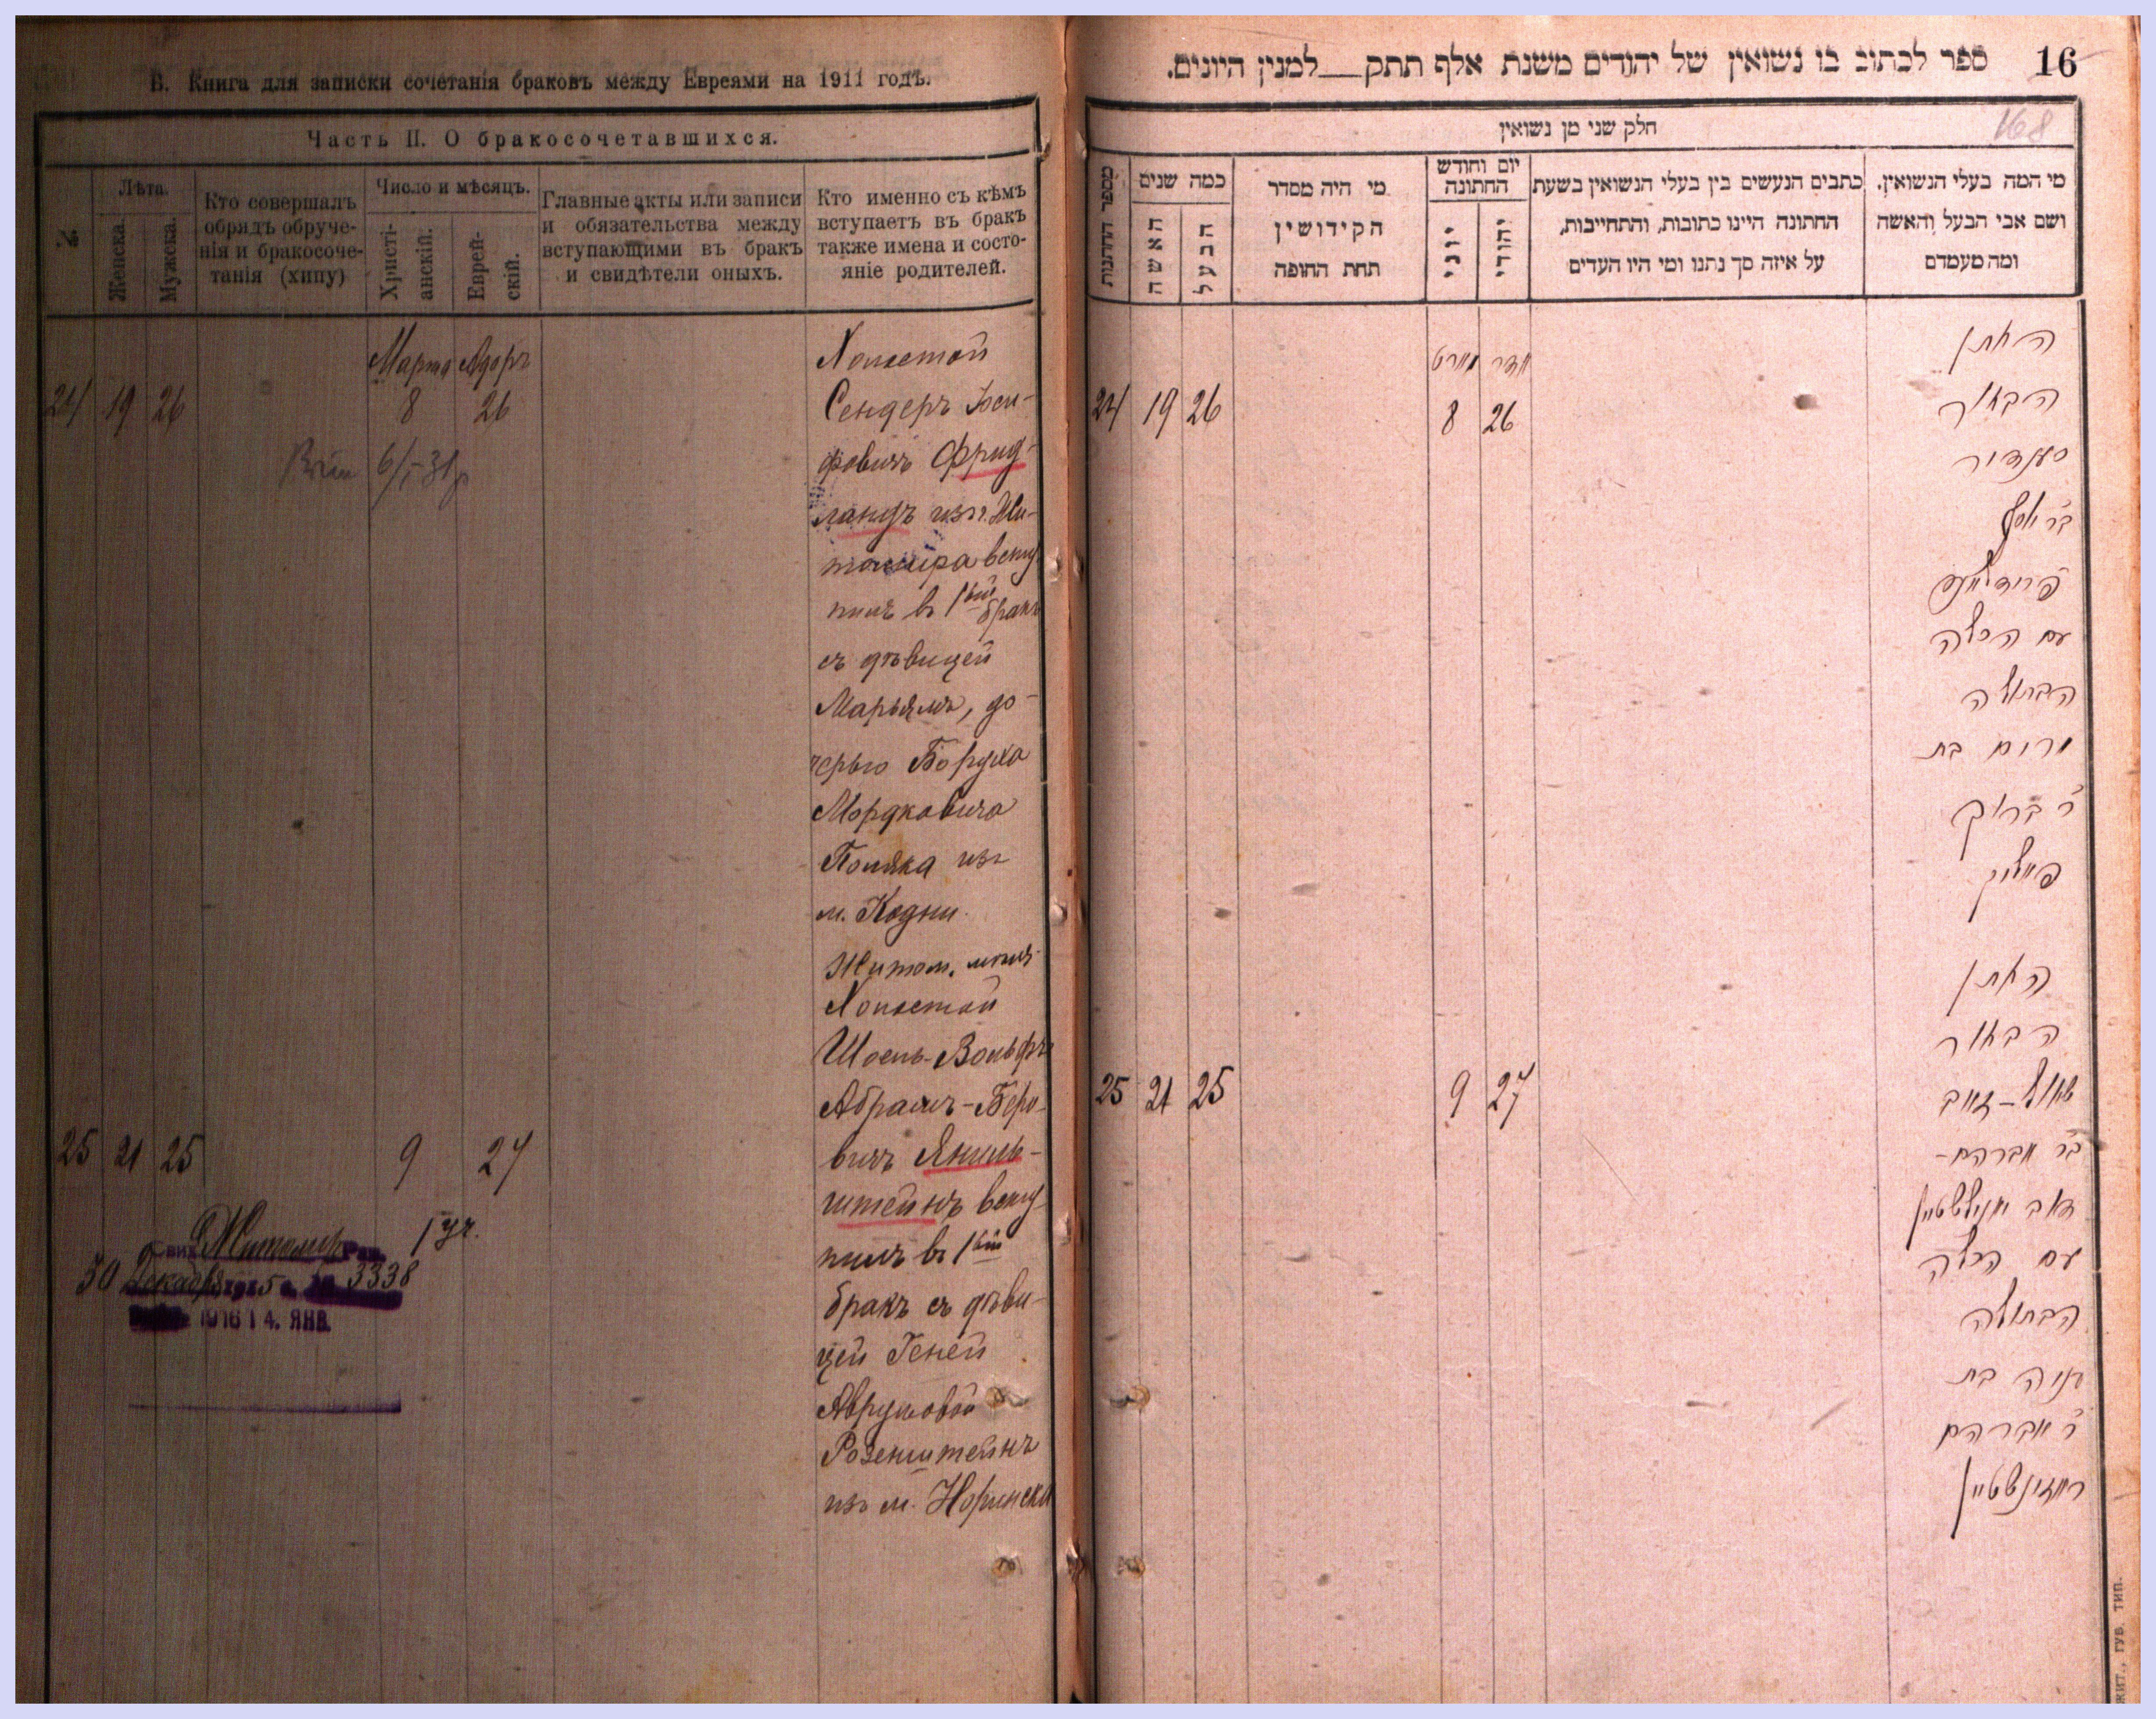 В. Книга для записки сочетанія браковъ между Евреями на 1911 годъ.
Часть II. О бракосочетавшихся.
№
Лѣта.
Женска.
Мужска.
Кто совершалъ
обрядъ обруче-
нія и бракосоче-
танія (хипу)
Число и мѣсяцъ.
Христі-
анскій.
Еврей-
скій.
Главные акты или записи
и обязательства между
вступающими въ бракъ
и свидѣтели оныхъ.
Кто именно съ кѣмъ
вступаетъ въ бракъ
также имена и состо-
яніе родителей.
Марта Адоръ
24 19 26 8 26
6/I-31
Холостой
Сендеръ Іоси-
фовичъ Фрид-
ландъ изъ г. Жи-
томира всту-
пилъ въ 1ый бракъ
съ дѣвицей
Марьямъ, до-
черью Боруха
Мордковича
Поляка изъ
м. Кодни
Житом.
Холостой
Шоель-Вольфъ
Абрамъ-Беро-
вичъ Янкель-
штейнъ всту-
пилъ въ 1ый
бракъ съ дѣви-
цей Геней
Аврумовой
Розенштейнъ
изъ м. Норинска
25 21 25 9 27
Житомир 1 уч.
30 Декабря 5 3338
1916 14. ЯНВ.
16
168
ספר לכתוב בו נשואין של יהודים משנת אלף תתק__למנין היונים.
חלק שני מן נשואין
מי המה בעלי הנשואין,
ושם אבי הבעל והאשה
ומה מעמדם
כתבים הנעשים בין בעלי הנשואין בשעת
החתונה היינו כתובות, והתחייבות,
על איזה סך נתנו ומי היו העדים
יום וחודש
החתונה
יהודי
יוני
מי היה מסדר
הקידושין
תחת החופה
כמה שנים
הבעל
האשה
מספר החתונות
אדר מארט
24 19 26 8 26
החתן
הבחור
סענדיר
ב״ר יוסף
פרידלאנד
עם הכלה
הבתולה
מרים בת
ר׳ ברוך
פאליק
החתן
הבחור
שאול-זאב
ב״ר אברהם-
דוב יאנילשטיין
עם הכלה
הבתולה
העניה בת
ר׳ אברהם
ראזינשטיין
25 21 25 9 27
жит., губ. тип.